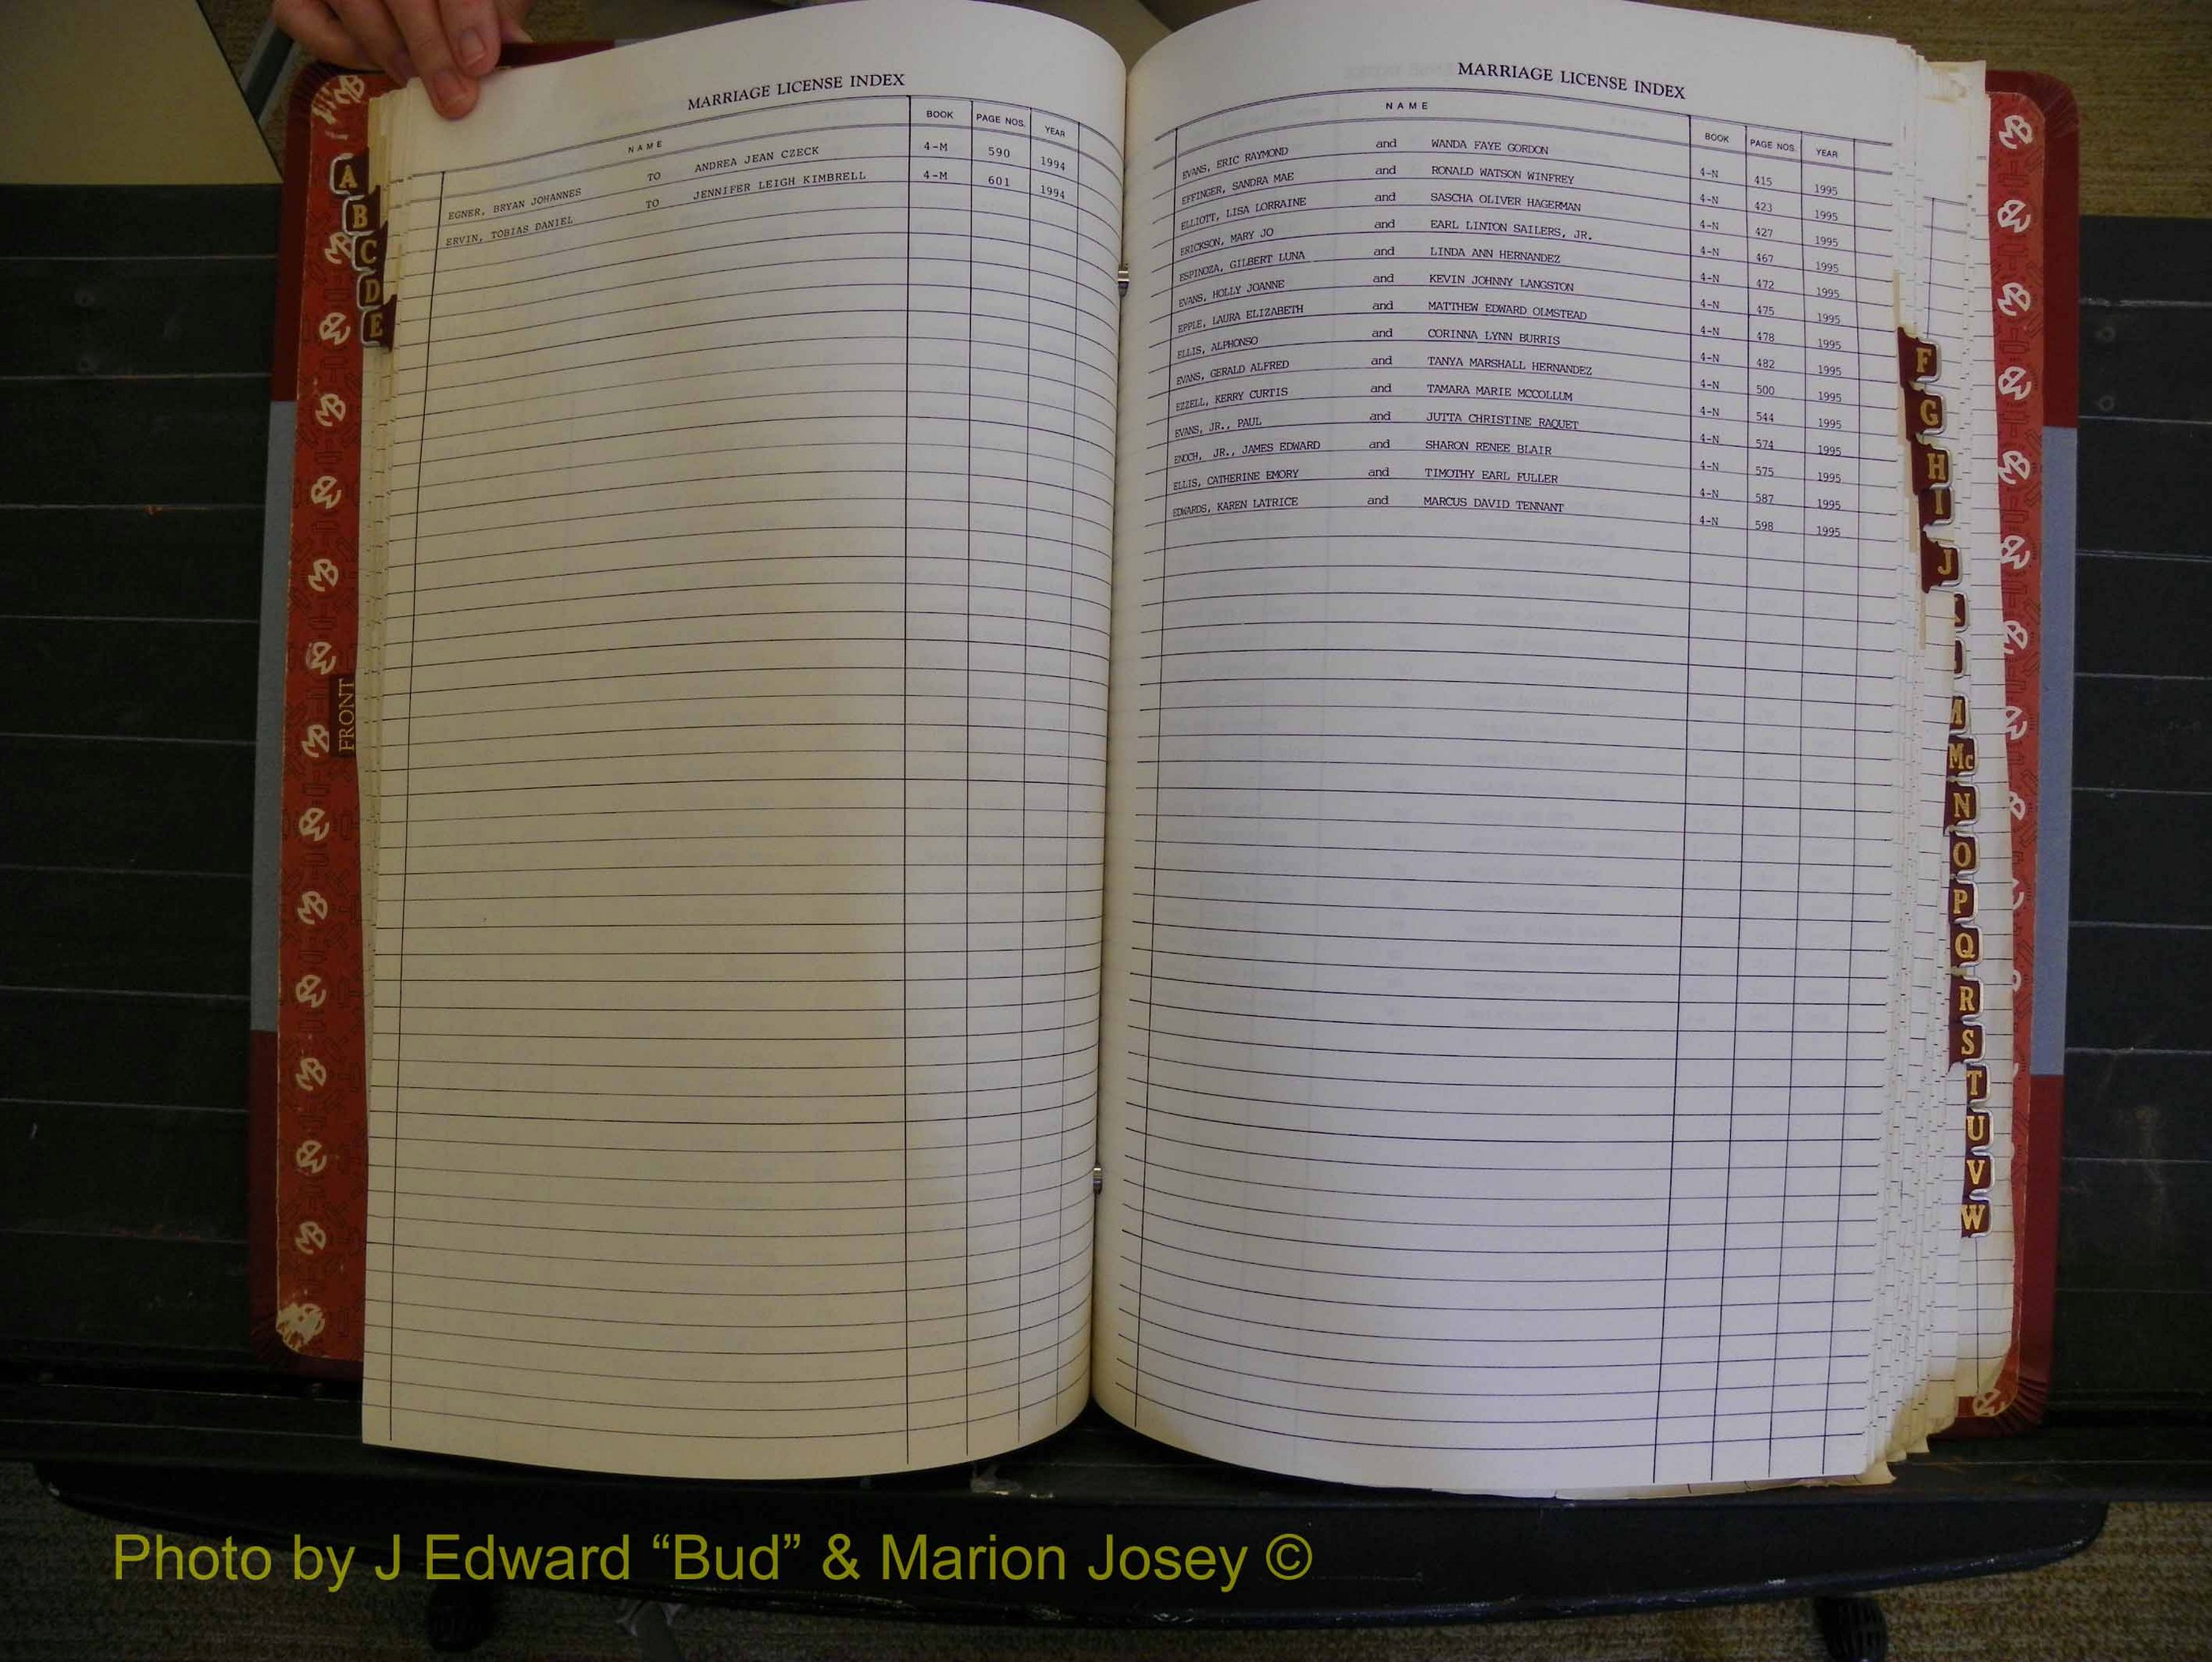 MARRIAGE LICENSE INDEX
NAME BOOK PAGE NOS. YEAR
EGNER, BRYAN JOHANNES TO ANDREA JEAN CZECK 4-M 590 1994
ERVIN, TOBIAS DANIEL TO JENNIFER LEIGH KIMBRELL 4-M 601 1994
MARRIAGE LICENSE INDEX
NAME BOOK PAGE NOS. YEAR
EVANS, ERIC RAYMOND and WANDA FAYE GORDON 4-N 415 1995
EFFINGER, SANDRA MAE and RONALD WATSON WINFREY 4-N 423 1995
ELLIOTT, LISA LORRAINE and SASCHA OLIVER HAGERMAN 4-N 427 1995
ERICKSON, MARY JO and EARL LINTON SAILERS, JR. 4-N 467 1995
ESPINOZA, GILBERT LUNA and LINDA ANN HERNANDEZ 4-N 472 1995
EVANS, HOLLY JOANNE and KEVIN JOHNNY LANGSTON 4-N 475 1995
EPPLE, LAURA ELIZABETH and MATTHEW EDWARD OLMSTEAD 4-N 478 1995
ELLIS, ALPHONSO and CORINNA LYNN BURRIS 4-N 482 1995
EVANS, GERALD ALFRED and TANYA MARSHALL HERNANDEZ 4-N 500 1995
EZZELL, KERRY CURTIS and TAMARA MARIE MCCOLLUM 4-N 544 1995
EVANS, JR., PAUL and JUTTA CHRISTINE RAQUET 4-N 574 1995
ENOCH, JR., JAMES EDWARD and SHARON RENEE BLAIR 4-N 575 1995
ELLIS, CATHERINE EMORY and TIMOTHY EARL FULLER 4-N 587 1995
EDWARDS, KAREN LATRICE and MARCUS DAVID TENNANT 4-N 598 1995
A
B
C
D
E
FRONT
F
G
H
I
J
M
Mc
N
O
P
Q
R
S
T
U
V
W
Photo by J Edward “Bud” & Marion Josey ©